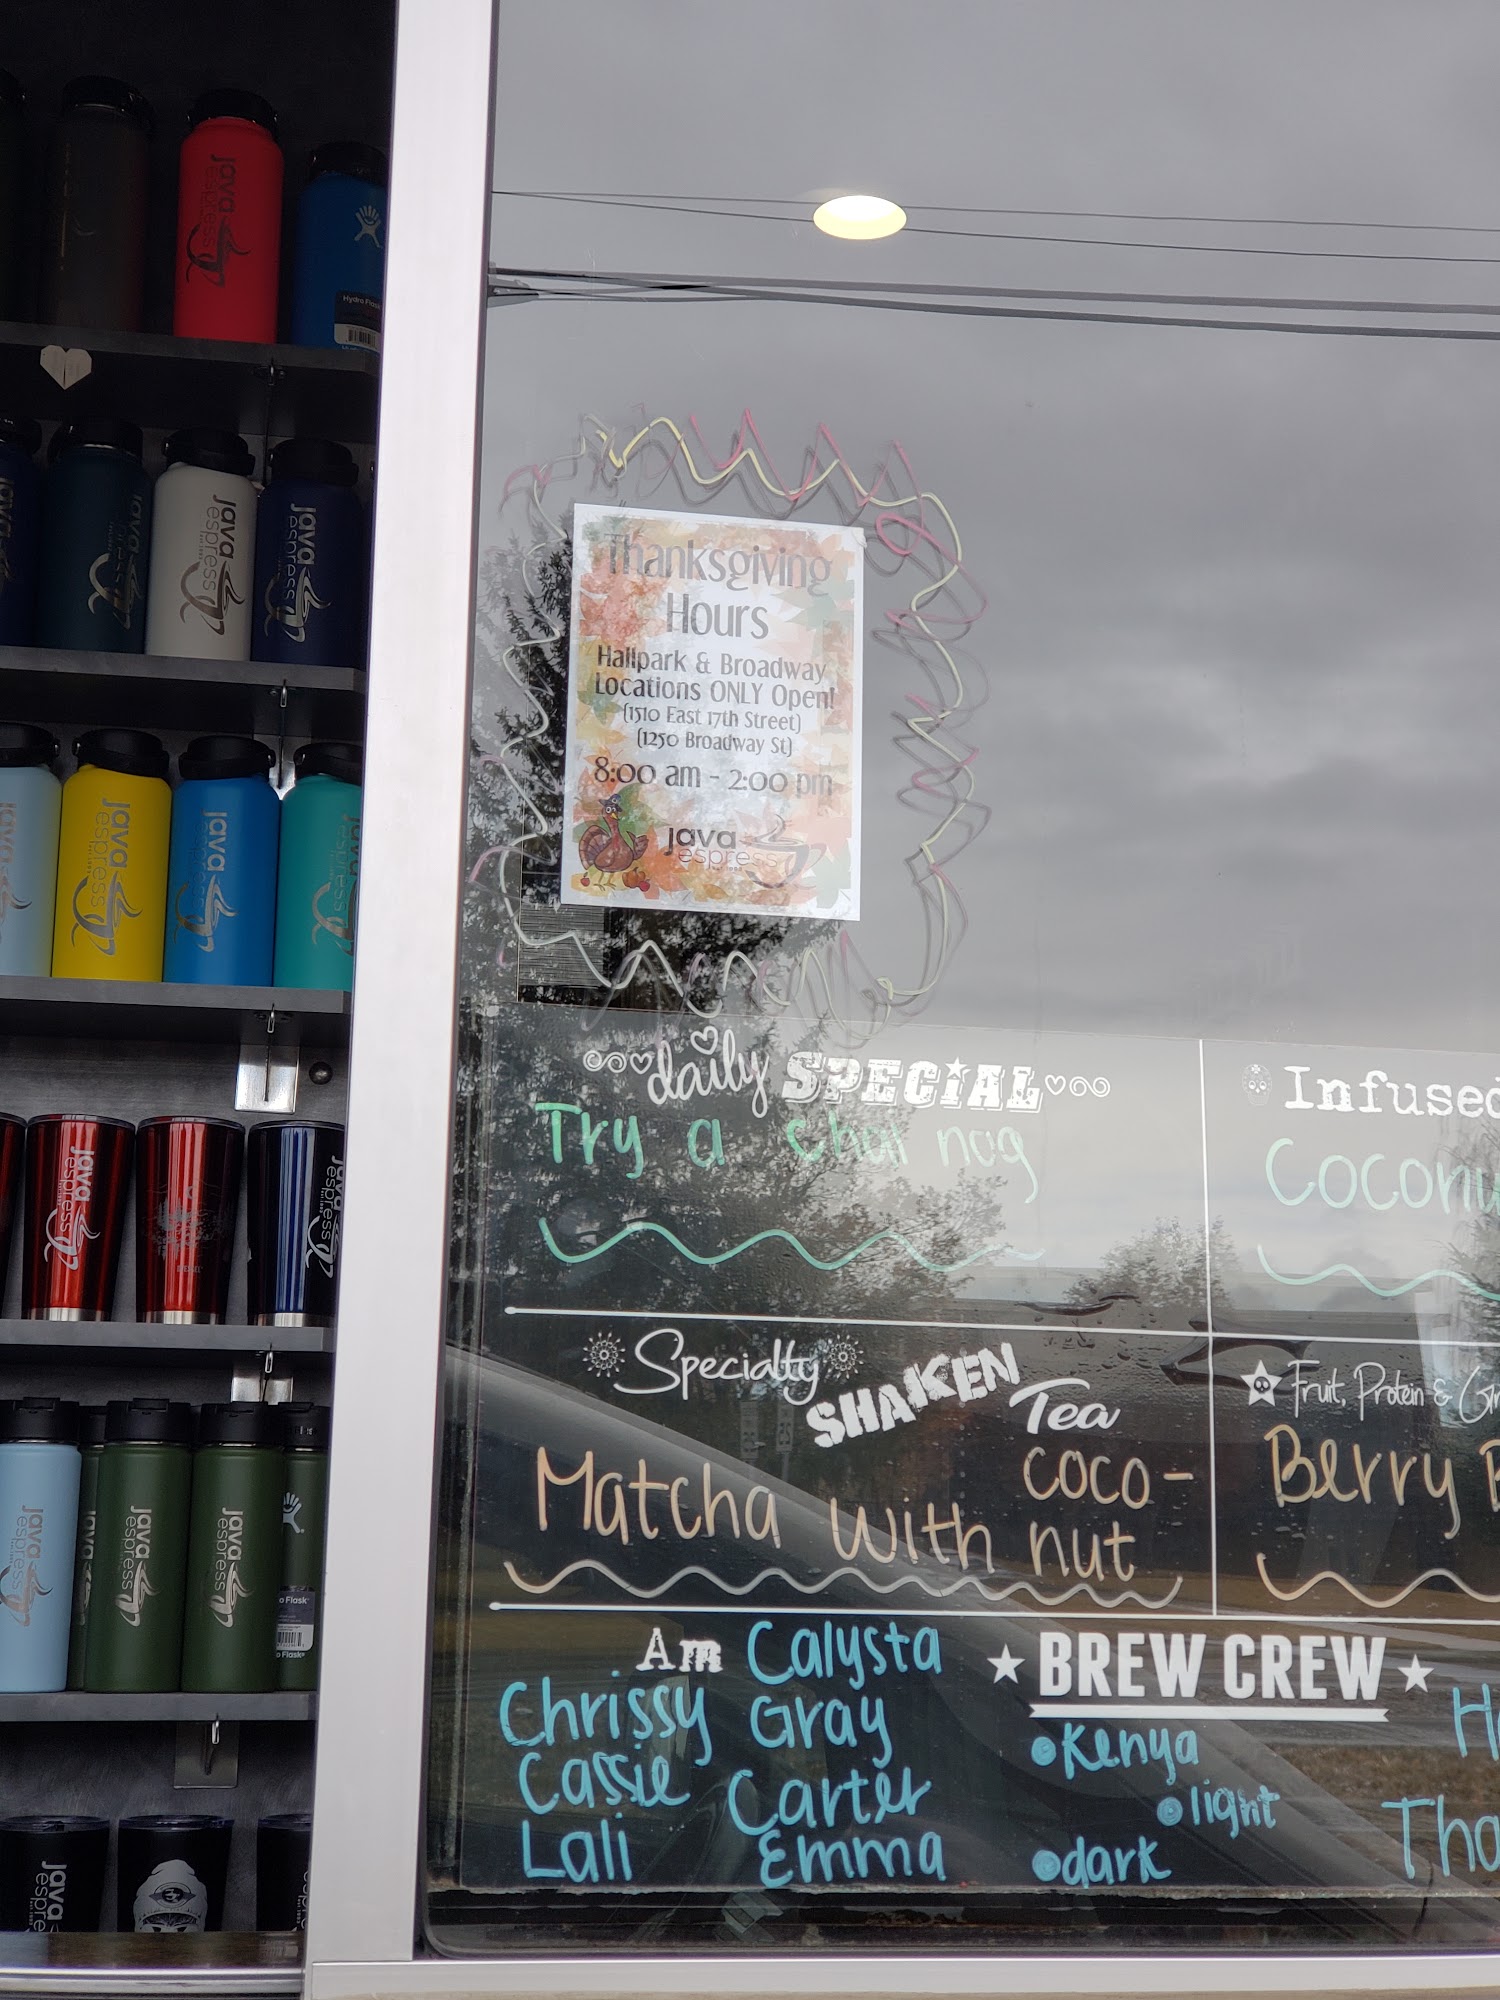 Thanksgiving
Hours
Hallpark & Broadway
Locations ONLY Open!
(1510 East 17th Street)
(1250 Broadway St)
8:00 am - 2:00 pm
java
espress
daily SPECIAL
Try a chai nog
Infused
Coconu
Specialty
SHAKEN
Tea
Matcha with coco-
nut
Fruit, Protein &
Berry B
Am Calysta
Chrissy Gray
Cassie Carter
Lali Emma
BREW CREW
Kenya
light
dark
Tha
java
espress
Hydro Flask
java
espress
java
espress
java
espress
java
espress
java
espress
java
espress
java
espress
java
espress
java
espress
java
espress
java
espress
java
espress